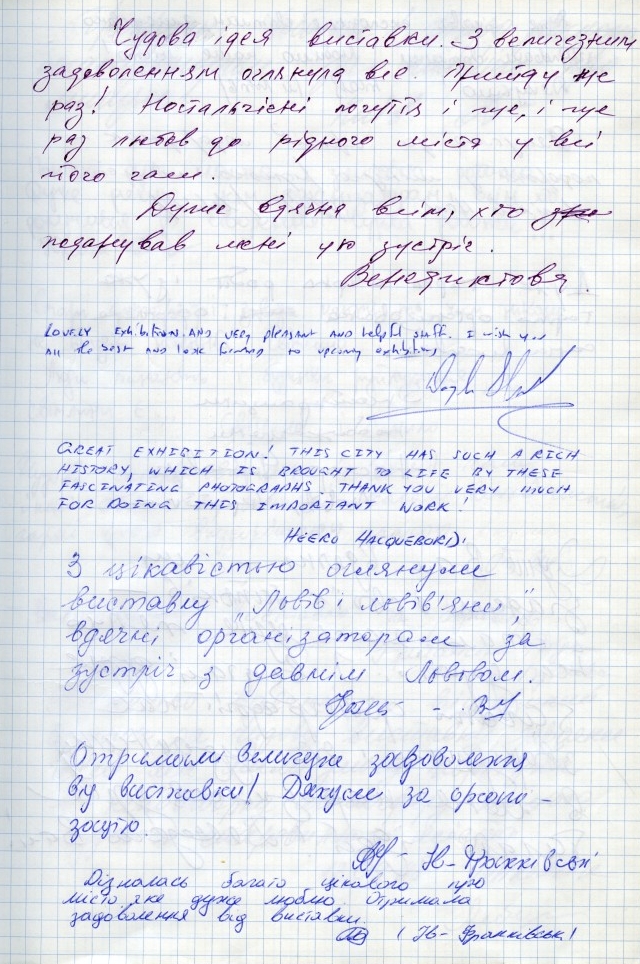 Чудова ідея виставки. З величезним
задоволенням оглянула все. Прийду ще
раз! Ностальгічні почуття і ще, і ще
раз любов до рідного міста у всі
його часи.
Дуже вдячна всім, хто
подарував мені цю зустріч.
Венедиктова.
Lovely exhibition and very pleasant and helpful staff. I wish you
all the best and look forward to upcoming exhibitions
GREAT EXHIBITION! THIS CITY HAS SUCH A RICH
HISTORY, WHICH IS BROUGHT TO LIFE BY THESE
FASCINATING PHOTOGRAPHS. THANK YOU VERY MUCH
FOR DOING THIS IMPORTANT WORK!
HEERO HACQUEBORD.
З цікавістю оглянули
виставку „Львів і львів'яни",
вдячні організаторам за
зустріч з давнім Львовом.
Отримали величезне задоволення
від виставки! Дякуєм за органі-
зацію.
Ів-Франківськ
Дізналась багато цікавого про
місто яке дуже люблю. Отримала
задоволення від виставки.
(Ів-Франківськ)